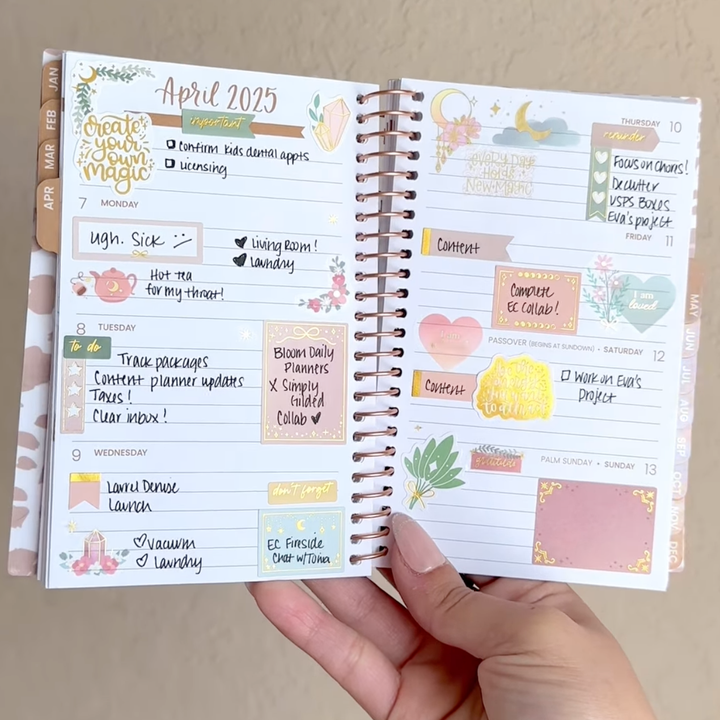 JAN
FEB
MAR
APR
April 2025
create
your
own
magic
important
Confirm kids dental appts
Licensing
7 MONDAY
Ugh. Sick
Living Room!
Laundry
Hot tea
for my throat!
8 TUESDAY
to do
Track packages
Content planner updates
Taxes!
Clear inbox!
Bloom Daily
Planners
X Simply
Gilded
Collab
9 WEDNESDAY
Laurel Denise
Launch
don't forget
Vacuum
Laundry
EC Fireside
Chat w/Tonia
THURSDAY 10
every day
Holds
New Magic
reminder
Focus on Chores!
Declutter
USPS Boxes
Eva's project
FRIDAY 11
Content
Complete
EC Collab!
I am
loved
PASSOVER (BEGINS AT SUNDOWN) • SATURDAY 12
Content
Work on Eva's
Project
PALM SUNDAY • SUNDAY 13
gratitude
MAY
JUN
JUL
AUG
SEP
OCT
NOV
DEC